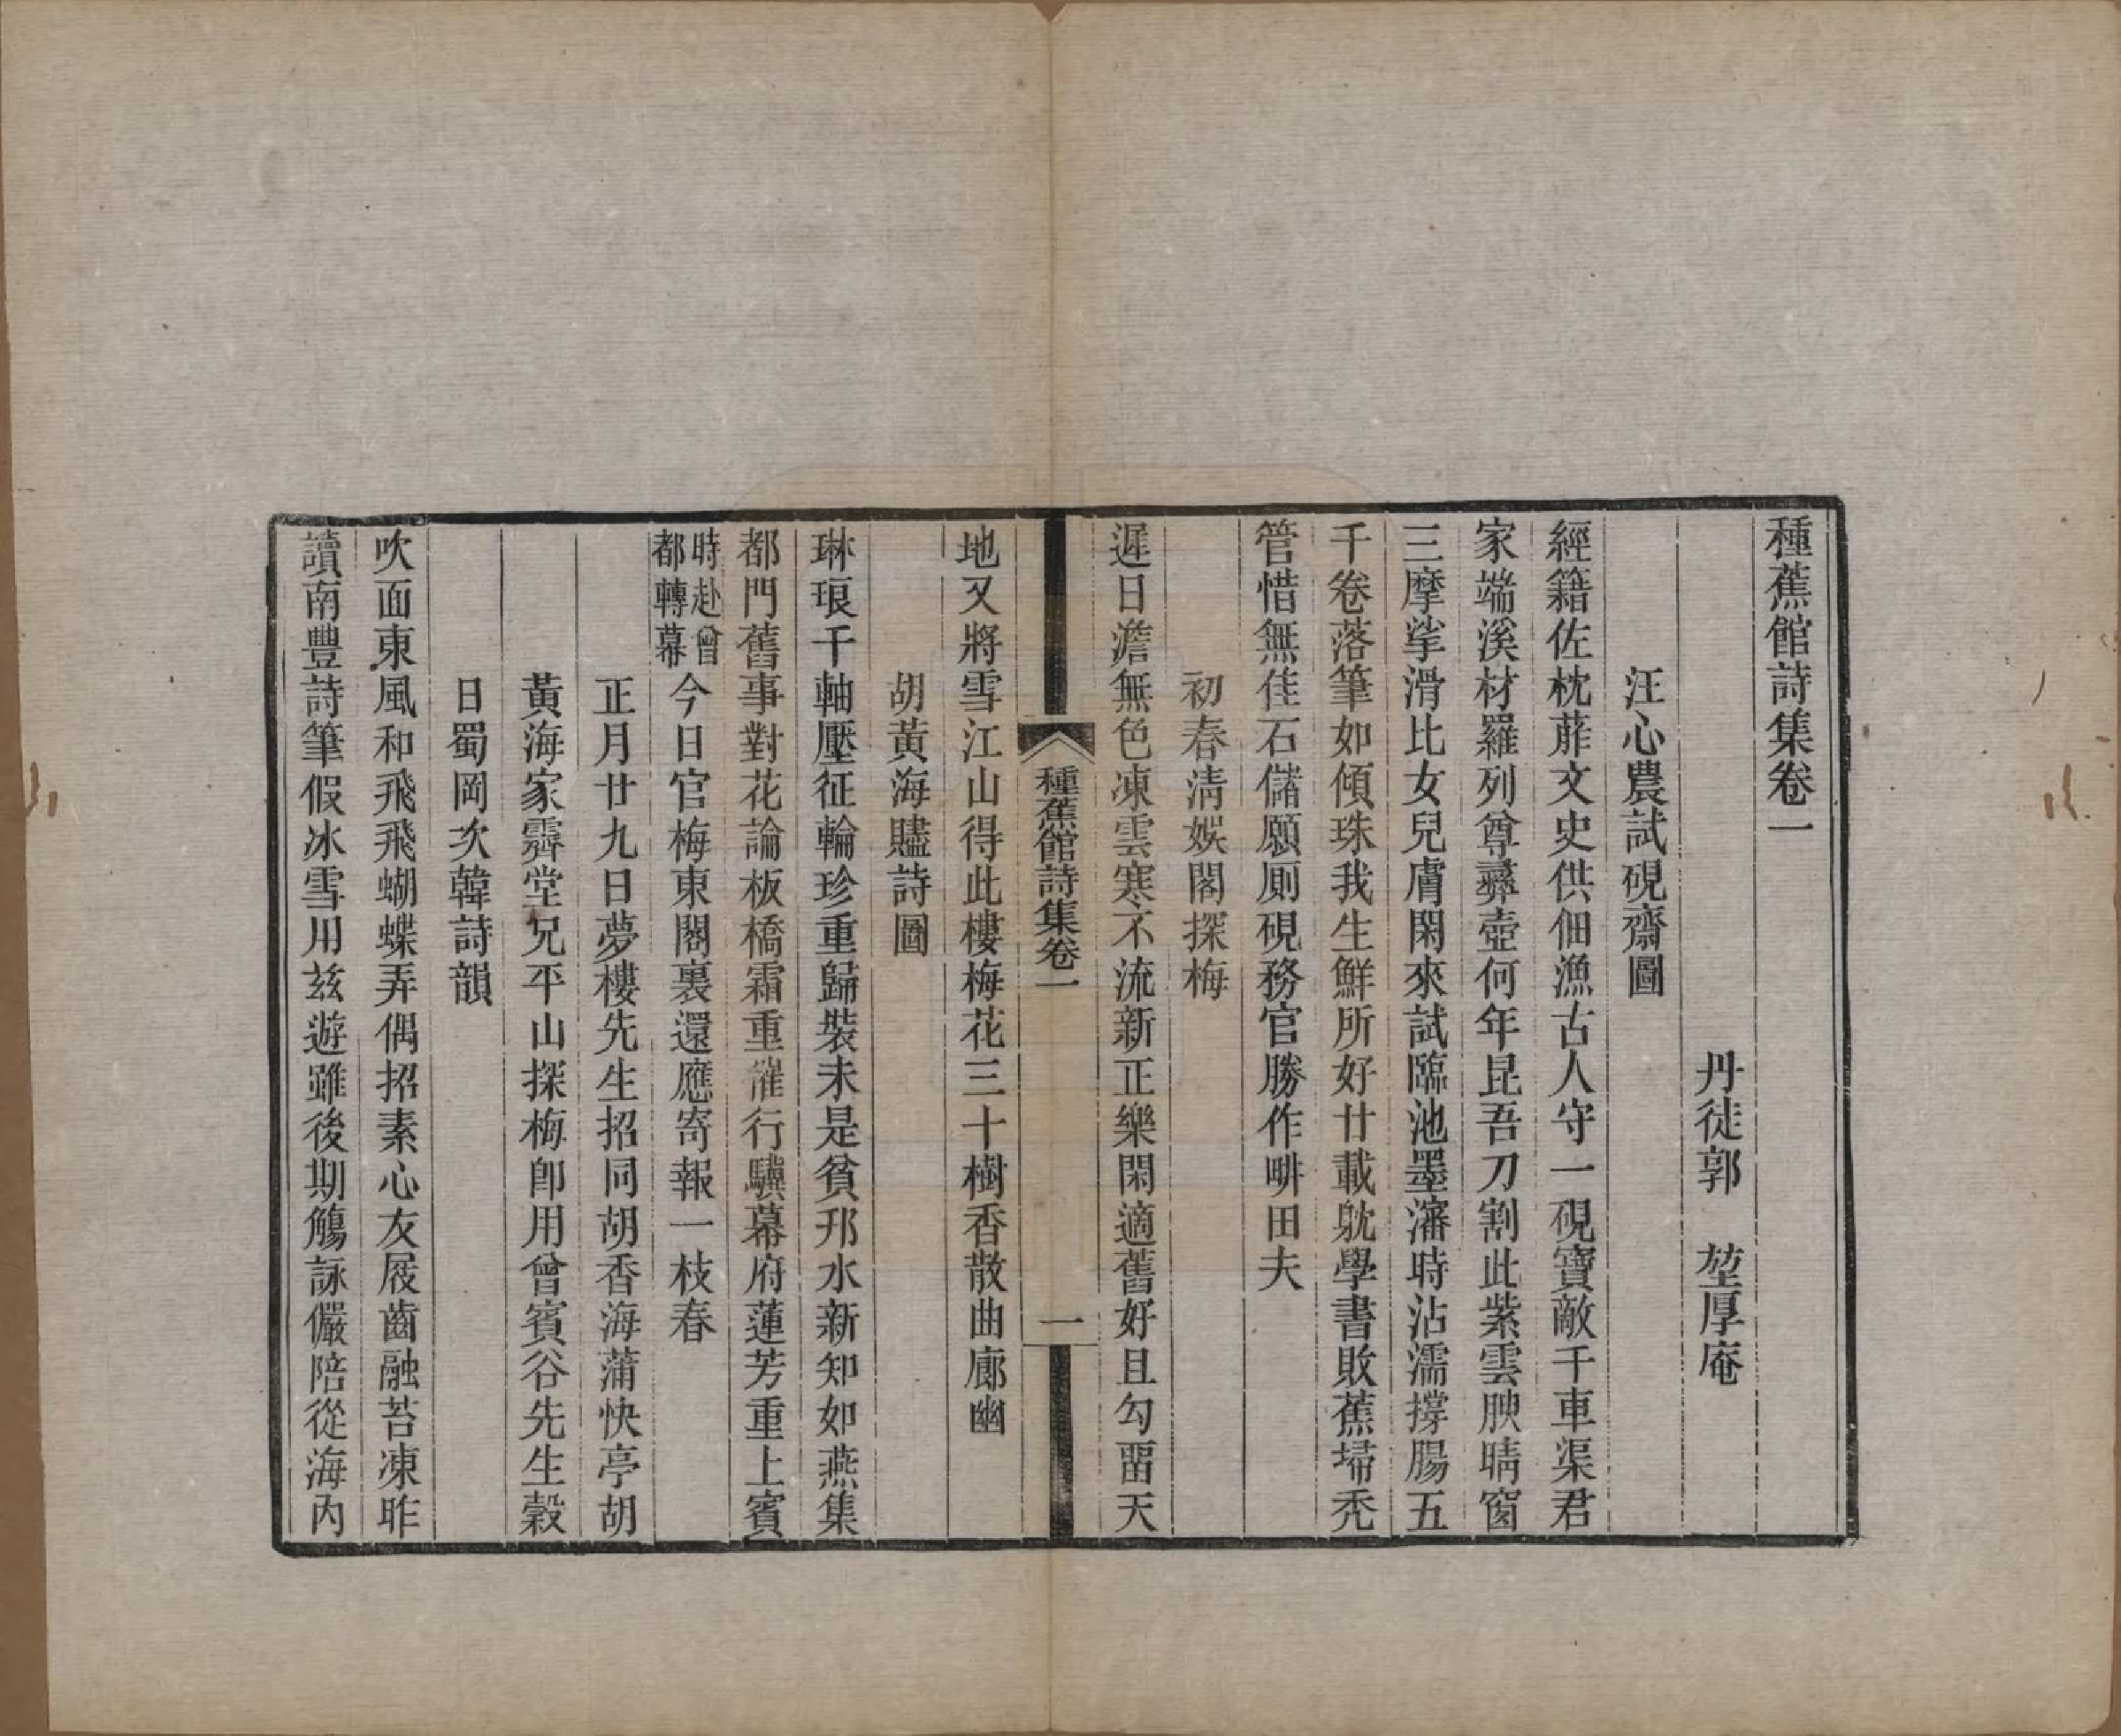 種蕉館詩集卷一
丹徒郭　堃厚庵
汪心農試硯齋圖
經籍佐枕葄文史供佃漁古人守一硯寶敵千車渠君
家端溪材羅列尊彝壺何年昆吾刀割此紫雲腴晴窗
三摩挲滑比女兒膚閑來試臨池墨瀋時沾濡撐腸五
千卷落筆如傾珠我生鮮所好廿載躭學書敗蕉埽禿
管惜無佳石儲願厠硯務官勝作畊田夫
初春清娛閣探梅
遲日澹無色凍雲寒不流新正樂閑適舊好且勾畱天
種蕉館詩集卷一
一
地又將雪江山得此樓梅花三十樹香散曲廊幽
胡黃海贐詩圖
琳琅千軸壓征輪珍重歸裝未是貧邗水新知如燕集
都門舊事對花論板橋霜重漼行驥幕府蓮芳重上賓
時赴曾都轉幕今日官梅東閣裏還應寄報一枝春
正月廿九日夢樓先生招同胡香海蒲快亭胡
黃海家霽堂兄平山探梅卽用曾賓谷先生穀
日蜀岡次韓詩韻
吹面東風和飛飛蝴蝶弄偶招素心友屐齒融苔凍昨
讀南豐詩筆假冰雪用茲遊雖後期觴詠儼陪從海內